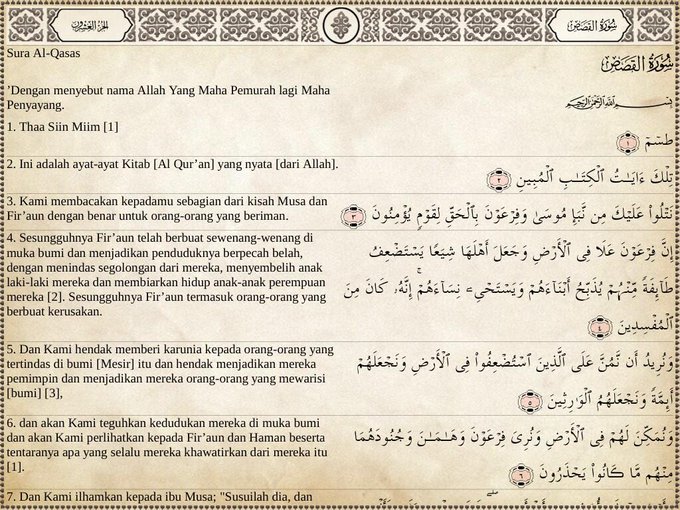 الجزء العشرون
سورة القصص
Sura Al-Qasas
سورة القصص
’Dengan menyebut nama Allah Yang Maha Pemurah lagi Maha
Penyayang.
بسم الله الرحمن الرحيم
1. Thaa Siin Miim [1]
طسٓمٓ ١
2. Ini adalah ayat-ayat Kitab [Al Qur’an] yang nyata [dari Allah].
تِلْكَ ءَايَـٰتُ ٱلْكِتَـٰبِ ٱلْمُبِينِ ٢
3. Kami membacakan kepadamu sebagian dari kisah Musa dan
Fir’aun dengan benar untuk orang-orang yang beriman.
نَتْلُوا۟ عَلَيْكَ مِن نَّبَإِ مُوسَىٰ وَفِرْعَوْنَ بِٱلْحَقِّ لِقَوْمٍ يُؤْمِنُونَ ٣
4. Sesungguhnya Fir’aun telah berbuat sewenang-wenang di
muka bumi dan menjadikan penduduknya berpecah belah,
dengan menindas segolongan dari mereka, menyembelih anak
laki-laki mereka dan membiarkan hidup anak-anak perempuan
mereka [2]. Sesungguhnya Fir’aun termasuk orang-orang yang
berbuat kerusakan.
إِنَّ فِرْعَوْنَ عَلَا فِى ٱلْأَرْضِ وَجَعَلَ أَهْلَهَا شِيَعًا يَسْتَضْعِفُ
طَآئِفَةً مِّنْهُمْ يُذَبِّحُ أَبْنَآءَهُمْ وَيَسْتَحْىِۦ نِسَآءَهُمْ ۚ إِنَّهُۥ كَانَ مِنَ
ٱلْمُفْسِدِينَ ٤
5. Dan Kami hendak memberi karunia kepada orang-orang yang
tertindas di bumi [Mesir] itu dan hendak menjadikan mereka
pemimpin dan menjadikan mereka orang-orang yang mewarisi
[bumi] [3],
وَنُرِيدُ أَن نَّمُنَّ عَلَى ٱلَّذِينَ ٱسْتُضْعِفُوا۟ فِى ٱلْأَرْضِ وَنَجْعَلَهُمْ
أَئِمَّةً وَنَجْعَلَهُمُ ٱلْوَٰرِثِينَ ٥
6. dan akan Kami teguhkan kedudukan mereka di muka bumi
dan akan Kami perlihatkan kepada Fir’aun dan Haman beserta
tentaranya apa yang selalu mereka khawatirkan dari mereka itu
[1].
وَنُمَكِّنَ لَهُمْ فِى ٱلْأَرْضِ وَنُرِىَ فِرْعَوْنَ وَهَـٰمَـٰنَ وَجُنُودَهُمَا
مِنْهُم مَّا كَانُوا۟ يَحْذَرُونَ ٦
7. Dan Kami ilhamkan kepada ibu Musa; "Susuilah dia, dan